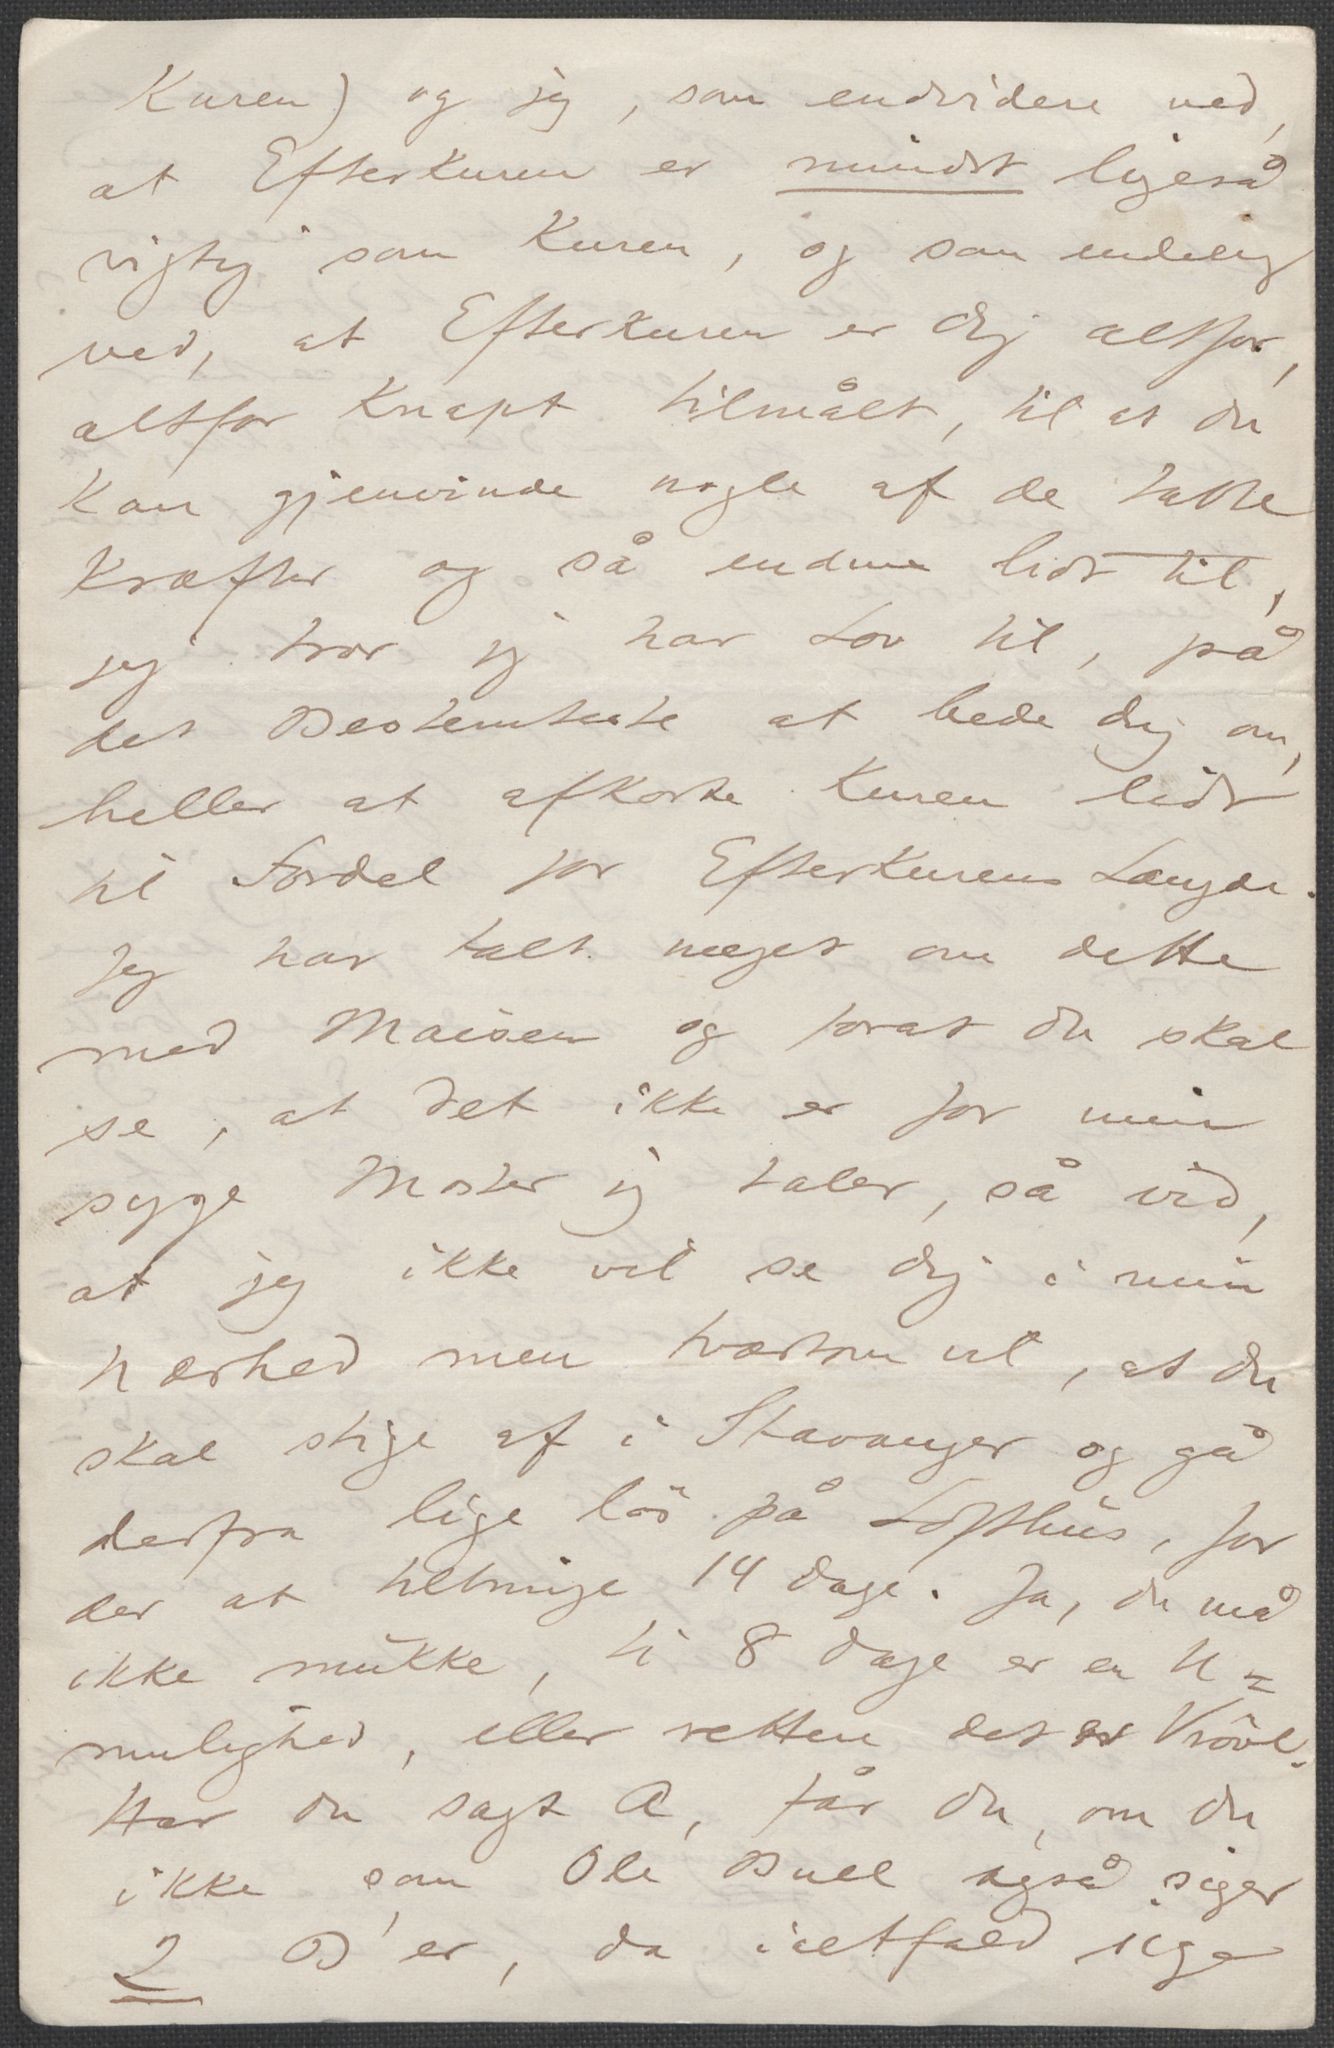 Kuren) og jeg, som endvidere ved,
at Efterkuren er mindst ligeså
vigtig som Kuren, og som endelig
ved, at Efterkuren er dig altfor,
altfor knapt tilmålt, til at du
kan gjenvinde nogle af de tabte
Kræfter og så endnu lidt til,
jeg tror jeg har Lov til, på
det Bestemteste at bede dig om,
heller at afkorte Kuren lidt
til Fordel for Efterkurens Længde.
Jeg har talt meget om dette
med Maisen og forat du skal
se, at det ikke er for min
syge Moster jeg taler, så vid,
at jeg ikke vil se dig i min
Nærhed men tværtom vil, at du
skal stige af i Stavanger og gå
derfra lige løs på Lofthus, for
der at tilbringe 14 dage. Ja, du må
ikke mukke, ti 8 dage er en U=
mulighed, eller rettere det er Vrövl.
Har du sagt A, får du, om du
ikke som Ole Bull også siger
2 B'er, da ialtfald sige